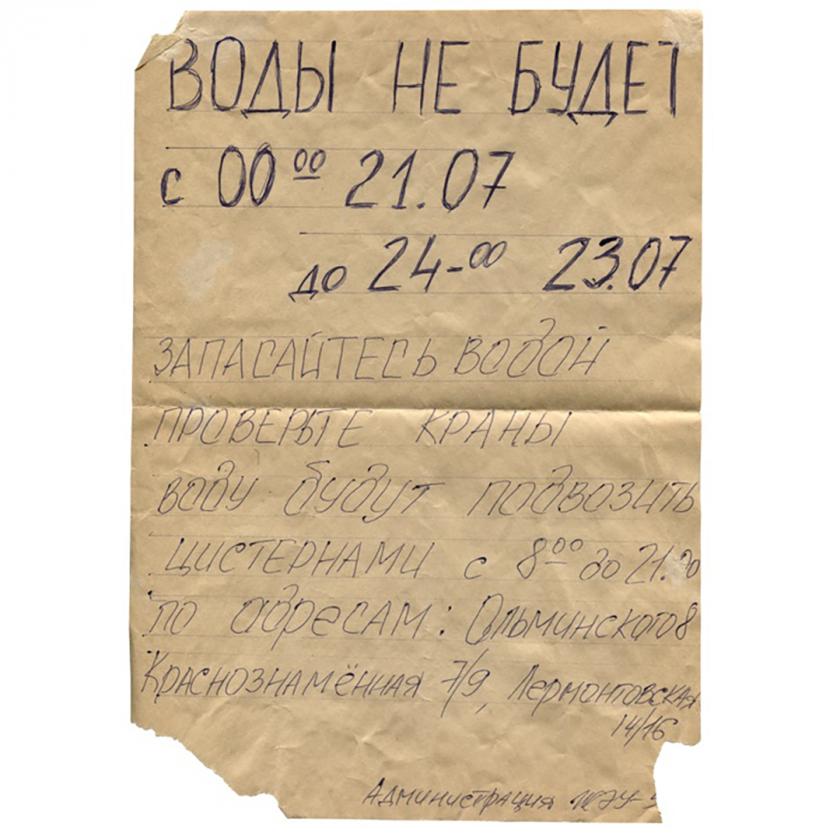 ВОДЫ НЕ БУДЕТ
с 00⁰⁰ 21.07
до 24-⁰⁰ 23.07
ЗАПАСАЙТЕСЬ ВОДОЙ
ПРОВЕРЬТЕ КРАНЫ
воду будут подвозить
цистернами с 8⁰⁰ до 21.00
по адресам: Ольминского 8
Краснознамённая 7/9, Лермонтовская
14/16
Администрация ЖЭУ-